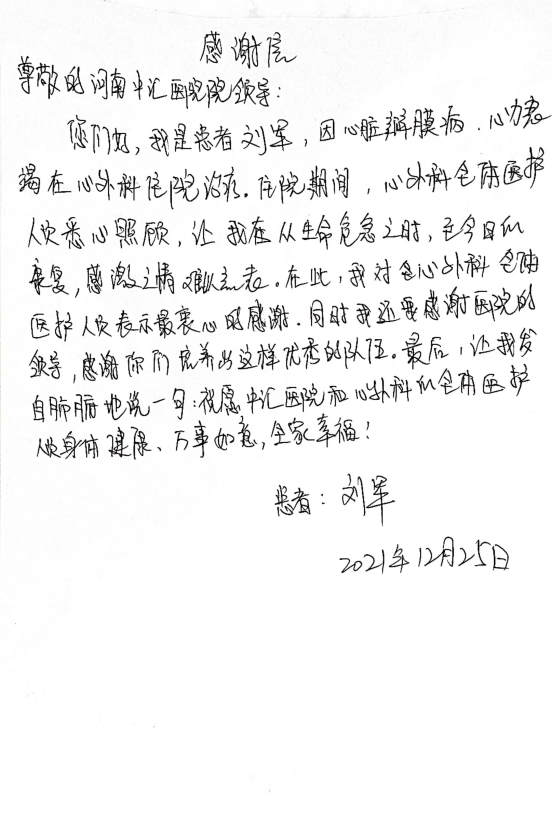 感谢信
尊敬的河南中汇医院院领导：
您们好，我是患者刘军，因心脏瓣膜病．心力衰
竭在心外科住院治疗．住院期间，心外科全体医护
人员悉心照顾，让我在从生命危急之时，至今日的
康复，感激之情难以言表。在此，我对全心外科全体
医护人员表示最衷心的感谢．同时我还要感谢医院的
领导，感谢你们培养出这样优秀的队伍。最后，让我发
自肺腑地说一句：祝愿中汇医院和心外科的全体医护
人员身体健康、万事如意，全家幸福！
患者：刘军
2021年12月25日